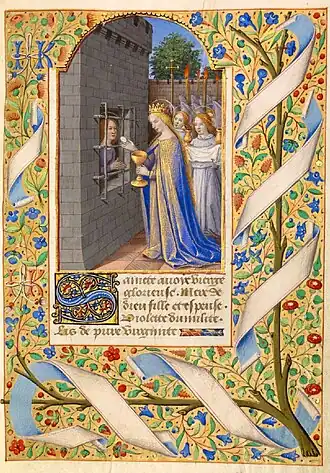 Saincte avoye vierge
glorieuse. Mere de
dieu fille et espouse.
Violette dumilite.
Lis de pure virginite